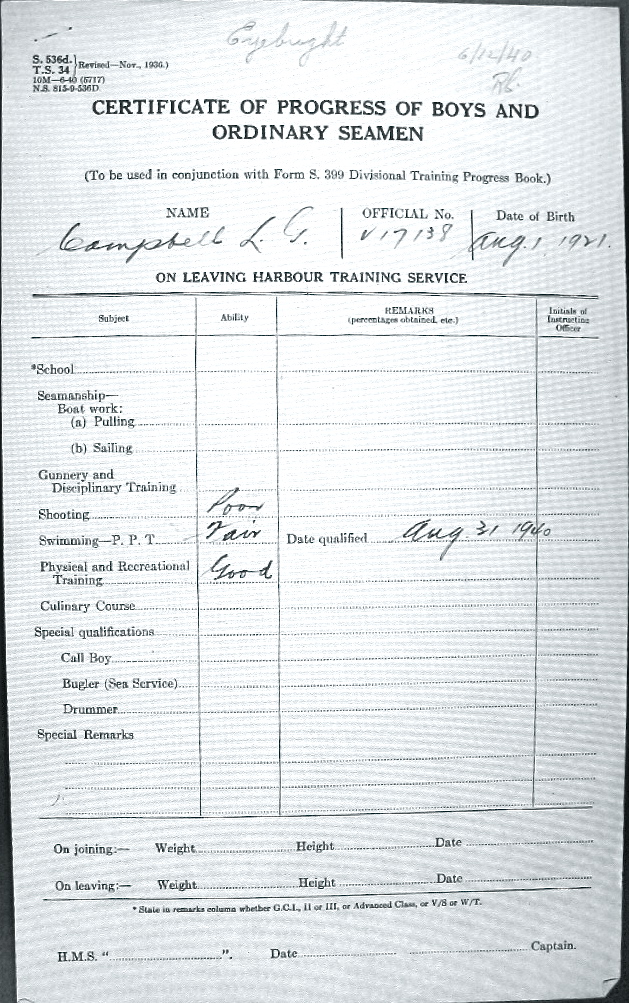 Eyebright
6/12/40
S. 536d.
T.S. 34 (Revised—Nov., 1936.)
10M—6-40 (5717)
N.S. 815-9-536D
CERTIFICATE OF PROGRESS OF BOYS AND
ORDINARY SEAMEN
(To be used in conjunction with Form S. 399 Divisional Training Progress Book.)
NAME OFFICIAL No. Date of Birth
Campbell L. G. V17138 Aug. 1. 1921.
ON LEAVING HARBOUR TRAINING SERVICE
Subject Ability REMARKS (percentages obtained, etc.) Initials of Instructing Officer
*School
Seamanship—
Boat work:
(a) Pulling
(b) Sailing
Gunnery and
Disciplinary Training
Shooting Poor
Swimming—P. P. T. Fair Date qualified Aug. 31 1940
Physical and Recreational
Training Good
Culinary Course
Special qualifications
Call Boy
Bugler (Sea Service)
Drummer
Special Remarks
On joining:— Weight Height Date
On leaving:— Weight Height Date
* State in remarks column whether G.C.I., II or III, or Advanced Class, or V/S or W/T.
H.M.S. “ ”. Date Captain.